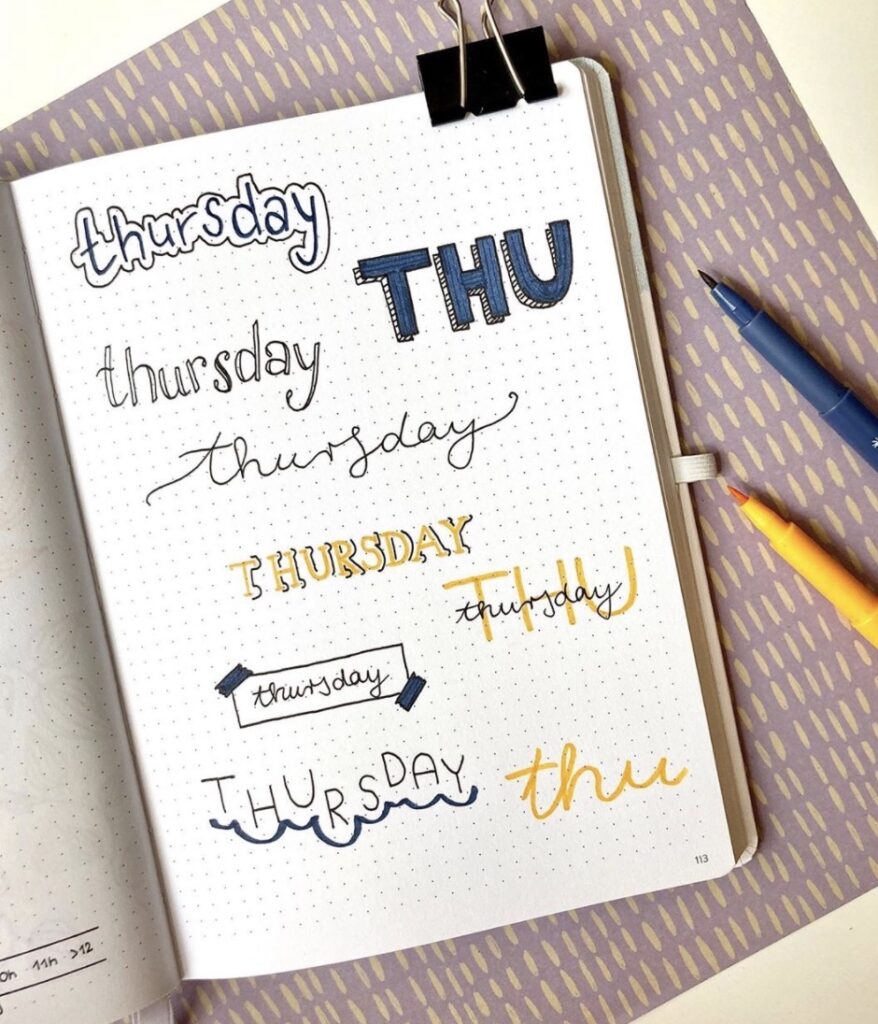 thursday
THU
thursday
thursday
THURSDAY
THU
thursday
thursday
THURSDAY
thu
113
11h >12